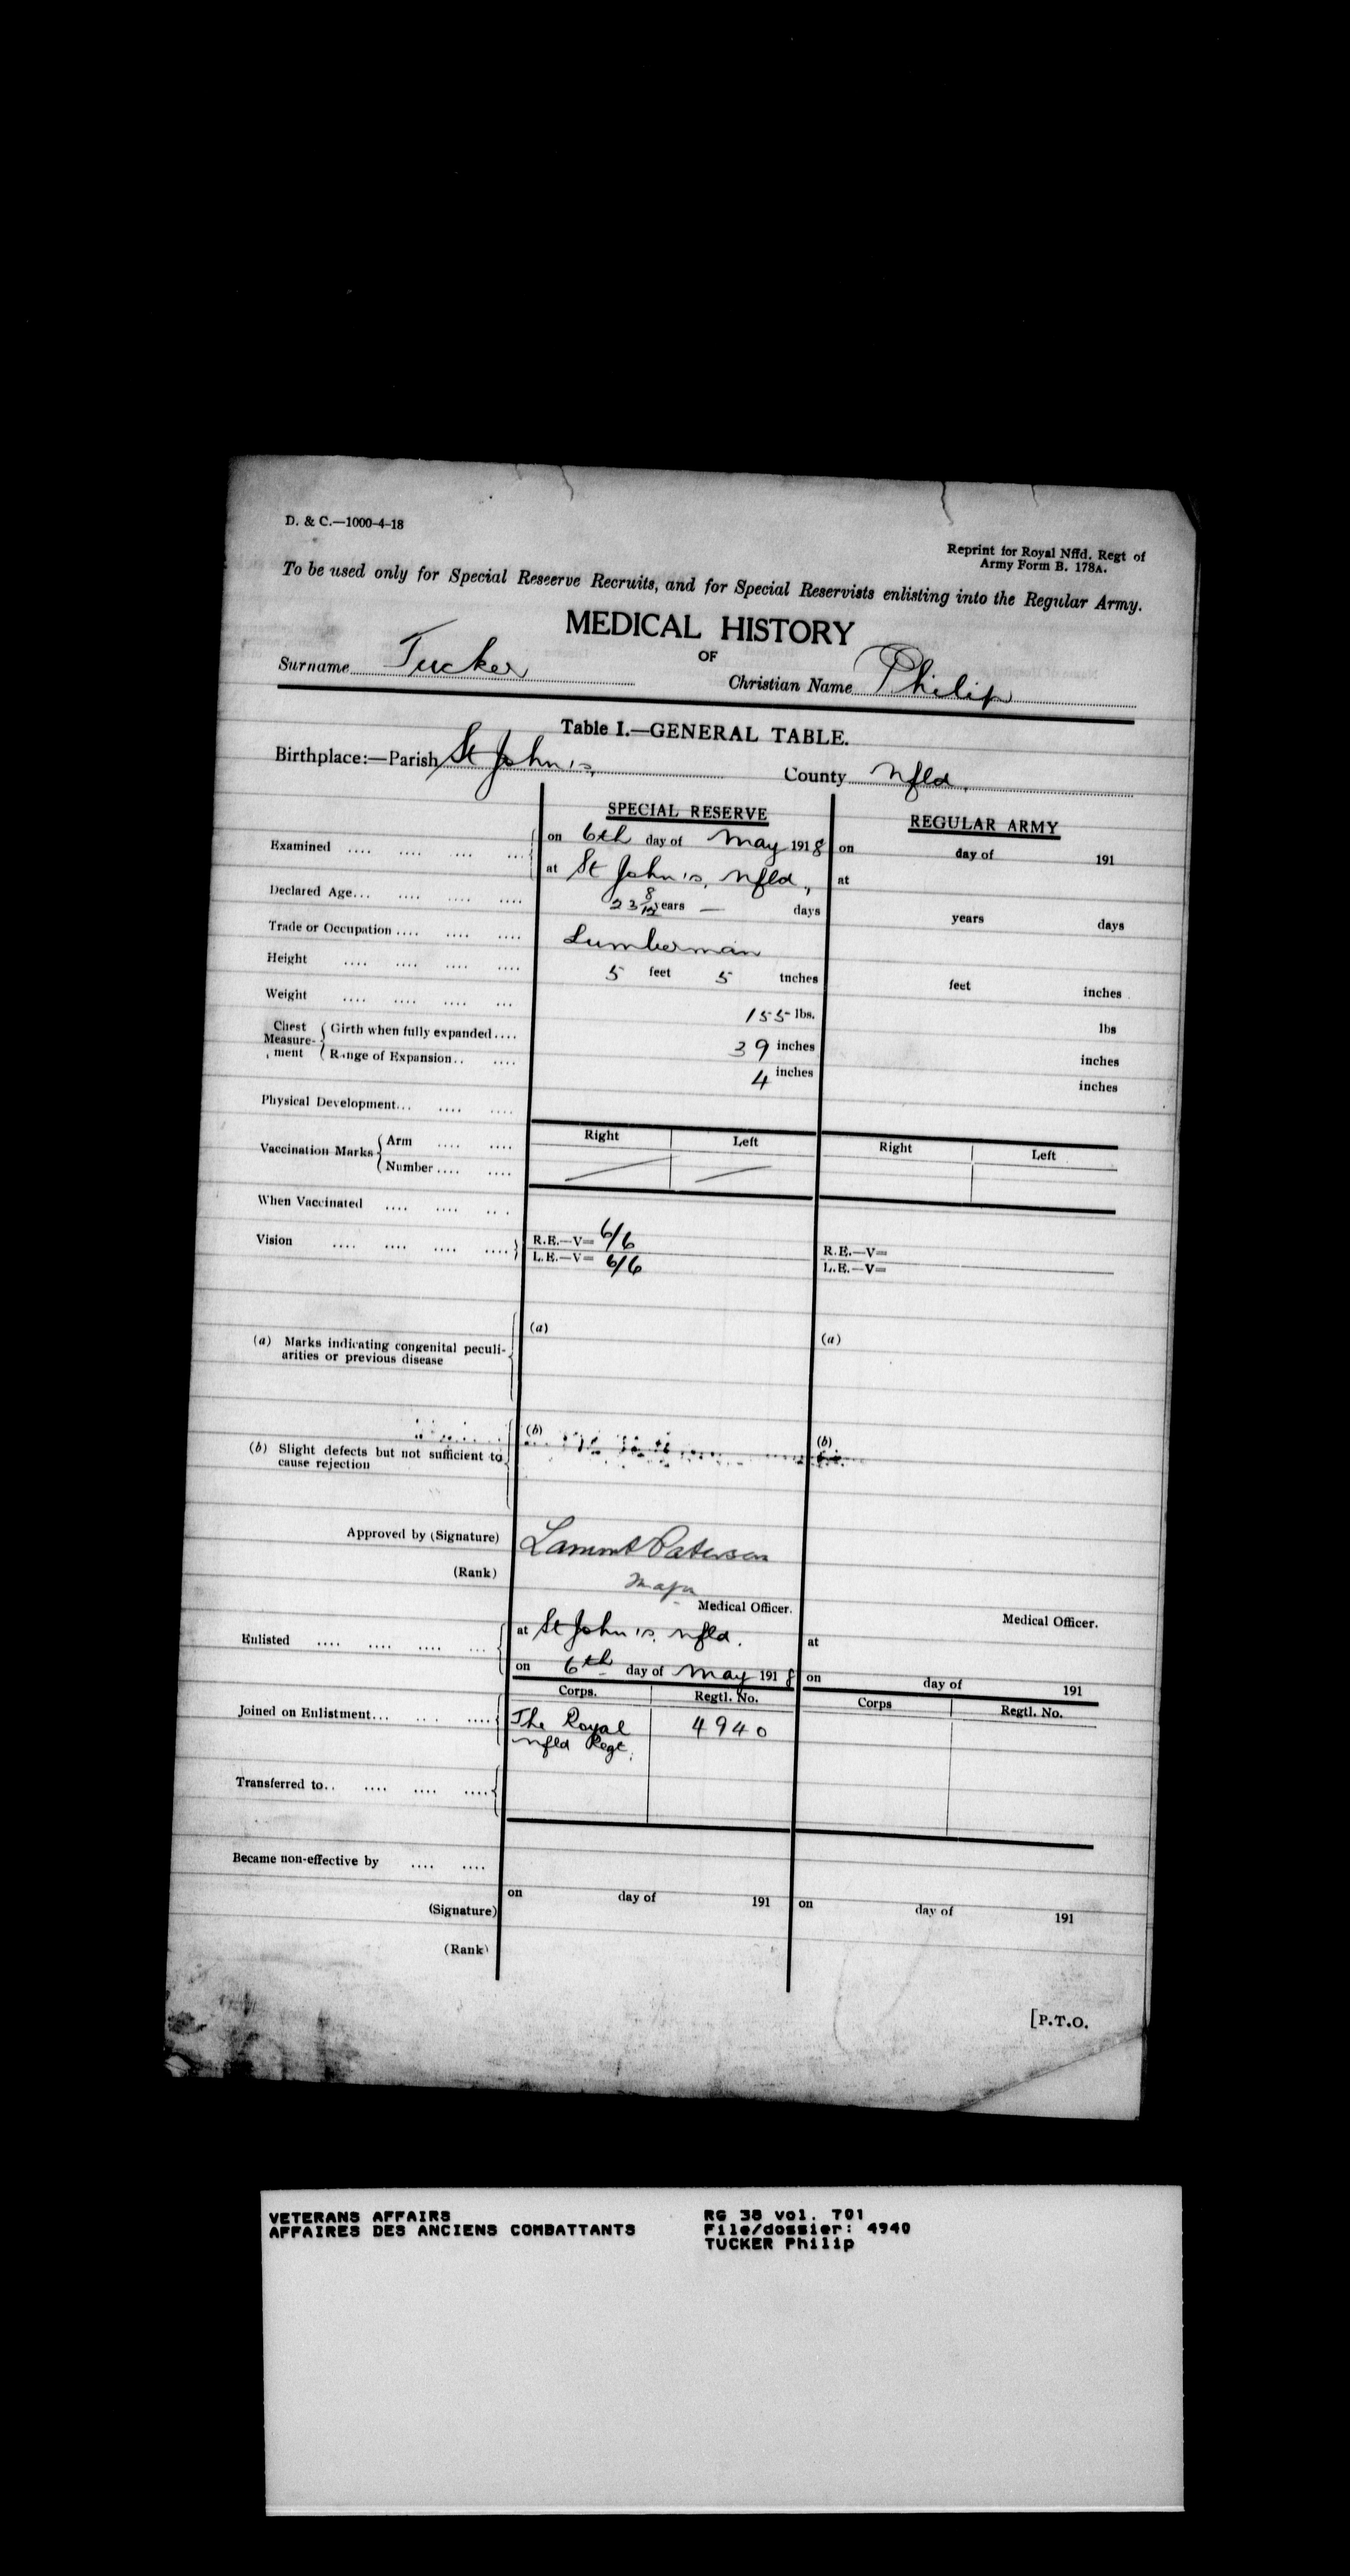 D. & C.—1000-4-18
Reprint for Royal Nffd. Regt of
Army Form B. 178A.
To be used only for Special Reseerve Recruits, and for Special Reservists enlisting into the Regular Army.
MEDICAL HISTORY
OF
Surname Tucker Christian Name Philip
Table I.—GENERAL TABLE.
Birthplace:—Parish St John's, County Nfld.
SPECIAL RESERVE REGULAR ARMY
Examined .... .... ... ... on 6th day of May 1918 on day of 191
at St John's, Nfld., at
Declared Age... .... .... .... 23 8/12 years — days years days
Trade or Occupation .... .... .... Lumberman
Height .... .... .... .... 5 feet 5 inches feet inches
Weight .... .... .... ... 155 lbs. lbs
Chest Measure-ment { Girth when fully expanded .... 39 inches inches
{ Range of Expansion .. .... 4 inches inches
Physical Development... .... ....
Right Left Right Left
Vaccination Marks { Arm .... ....
{ Number .... ....
When Vaccinated .... .... ...
Vision .... .... .... .... R.E.—V= 6/6 R.E.—V=
L.E.—V= 6/6 L.E.—V=
(a) Marks indicating congenital peculi-
arities or previous disease (a) (a)
(b) Slight defects but not sufficient to
cause rejection (b) (b)
Approved by (Signature) Lamont Paterson
(Rank) Major
Medical Officer. Medical Officer.
Enlisted .... .... .... ... at St John's, Nfld. at
on 6th day of May 1918 on day of 191
Corps. Regtl. No. Corps Regtl. No.
Joined on Enlistment... ... .... The Royal 4940
Nfld Regt.
Transferred to.. .... .... ....
Became non-effective by .... ....
on day of 191 on day of 191
(Signature)
(Rank)
[P.T.O.
VETERANS AFFAIRS RG 38 Vol. 701
AFFAIRES DES ANCIENS COMBATTANTS File/dossier: 4940
TUCKER Philip